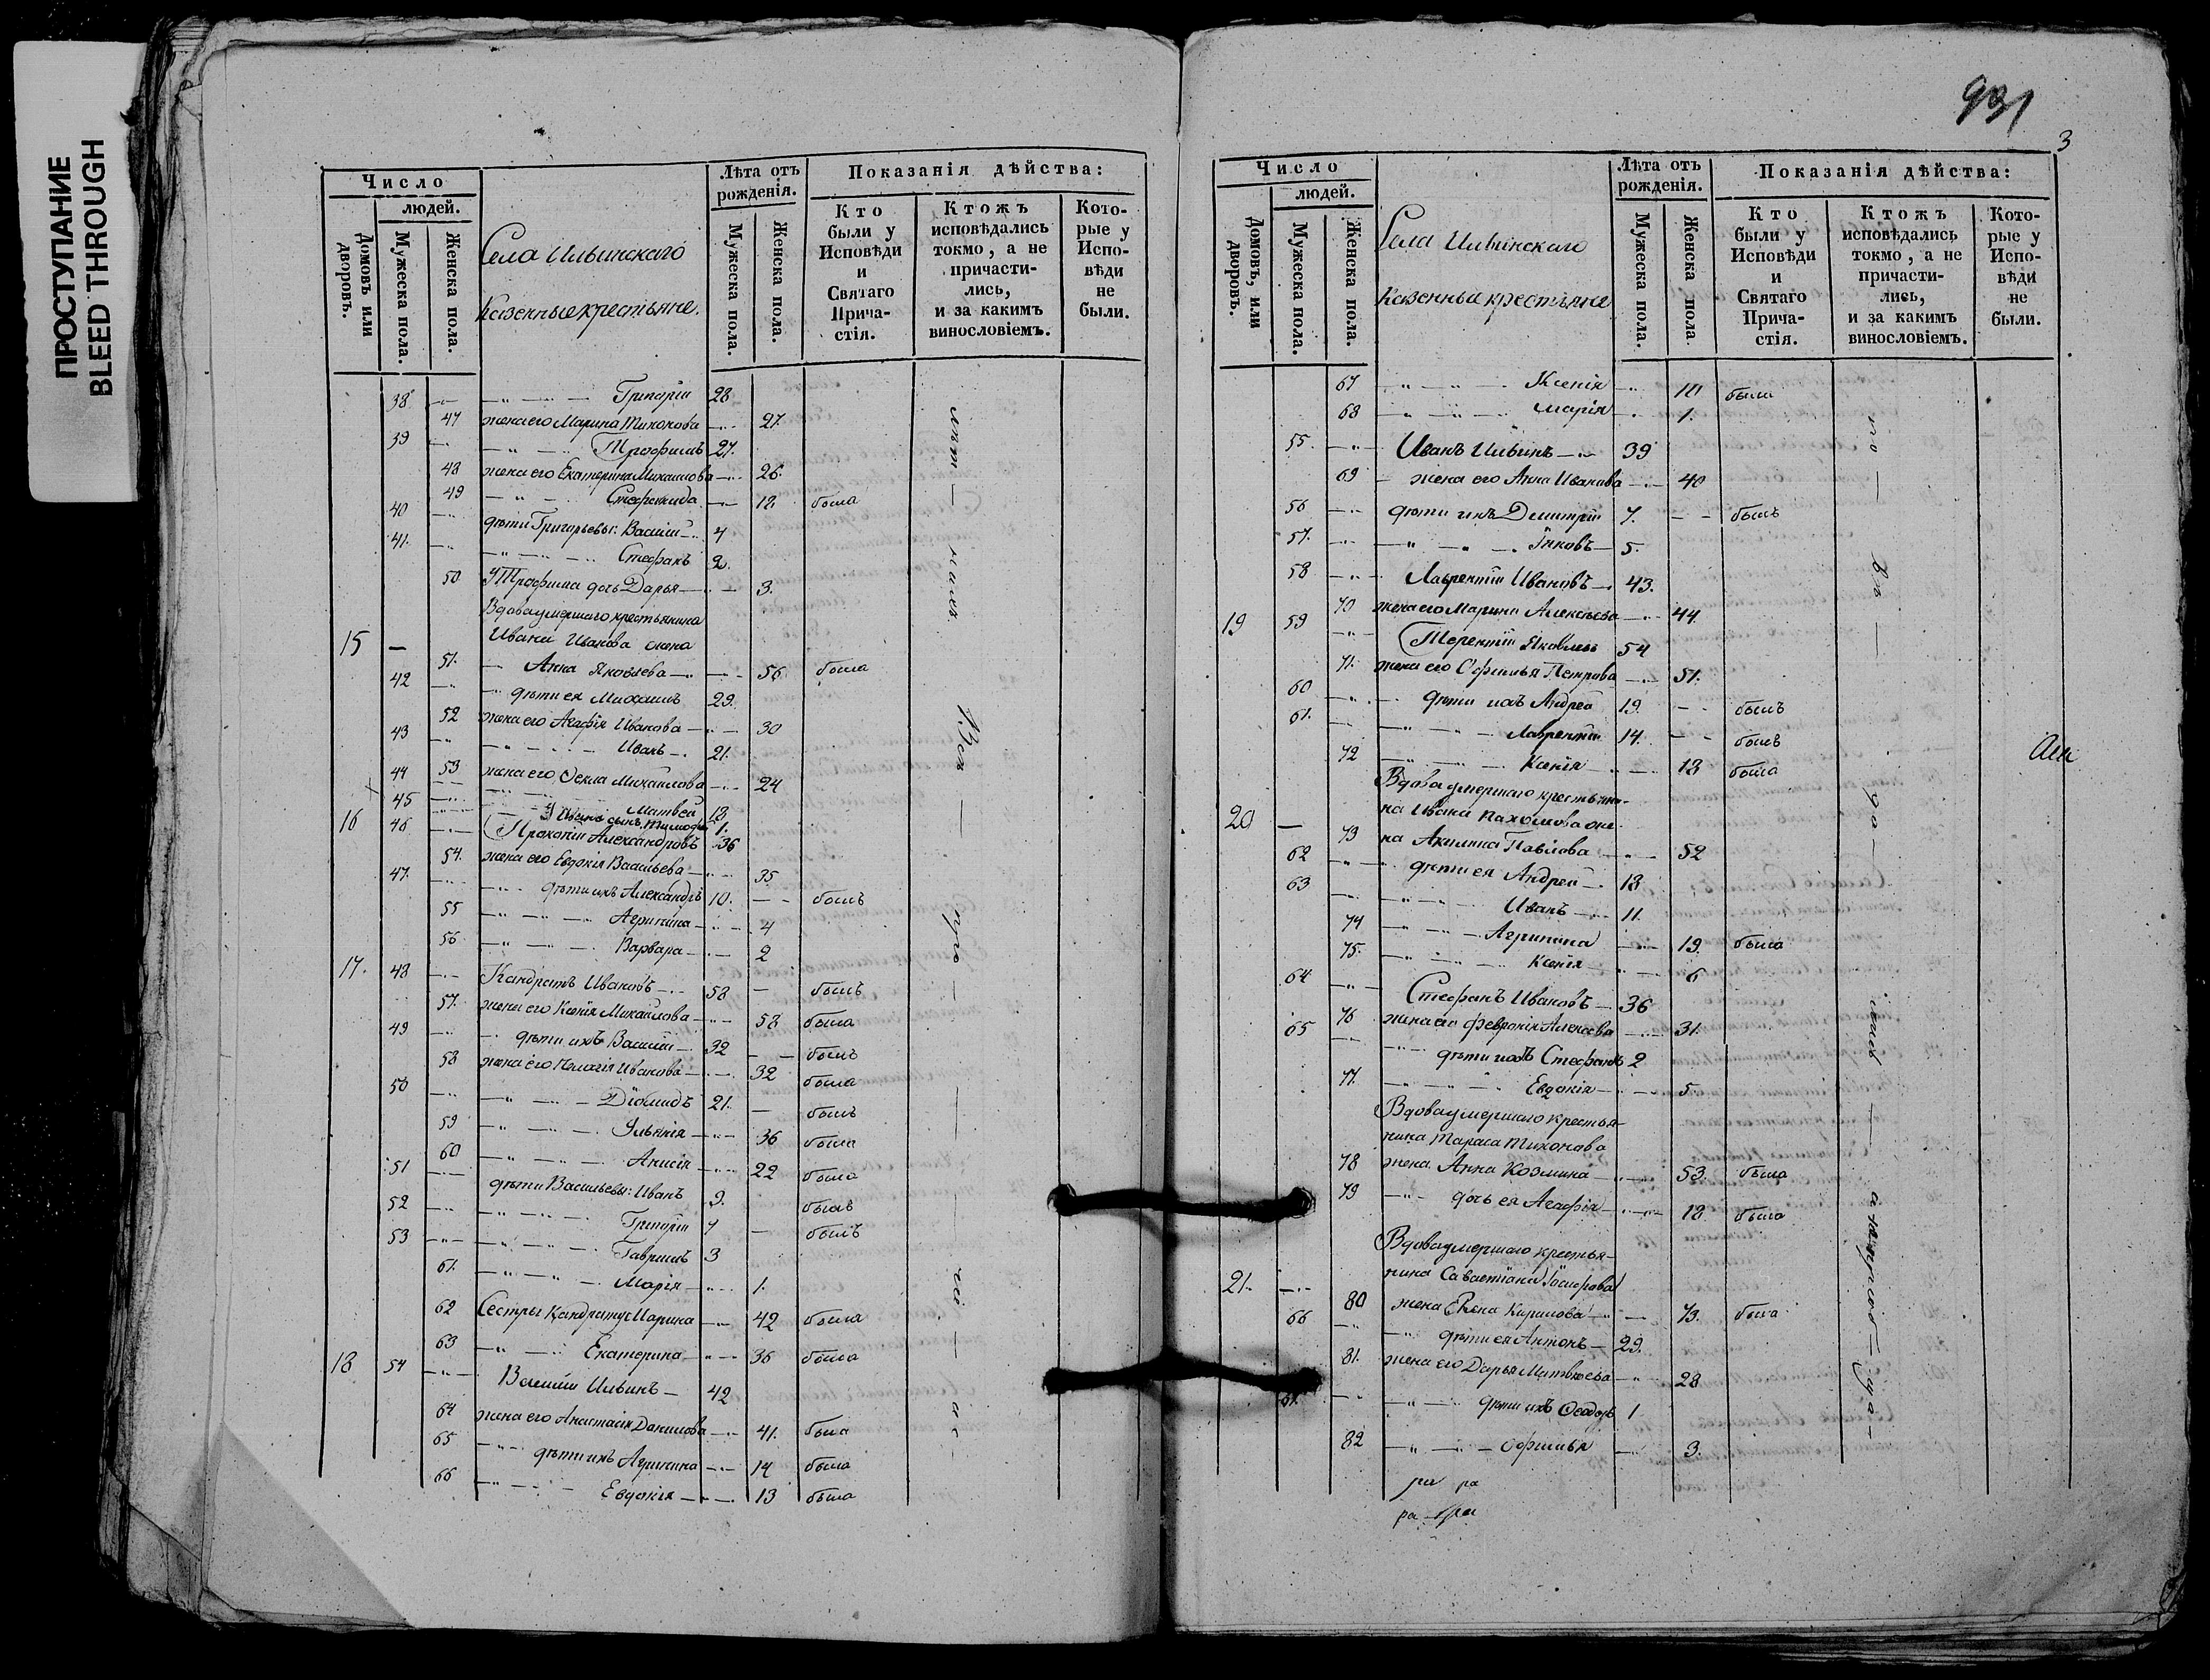 ПРОСТУПАНИЕ
BLEED THROUGH
Число
людей.
Домовъ или дворовъ.
Мужеска пола.
Женска пола.
Села Ильинскаго
Казенные крестьяне.
Лѣта отъ рожденія.
Мужеска пола.
Женска пола.
Показанія дѣйства:
Кто были у Исповѣди и Святаго Прича-стія.
Ктожъ исповѣдались токмо, а не причасти-лись, и за какимъ винословіемъ.
Кото-рые у Испо-вѣди не были.
38 Григорій 28
47 жена его Марина Тихонова 27.
39 Трофимъ 27.
48 жена его Екатерина Михаилова 26.
49 Стефанида 18 была
40 дѣти Григорьевы: Василій 4
41. Стефанъ 2.
50 У Трофима дочь Дарья 3.
Вдова умершаго крестьянина
15 Ивана Иванова жена
51. Анна Яковлева 56 была
42 дѣти ея Михаилъ 29.
52 жена его Агафія Иванова 30
43 Иванъ 21.
53 жена его Ѳекла Михаилова 24
44 Матвей 18
45 У Ивана сынъ Тимофей 1.
16 46 Прокопій Александровъ 36
54. жена его Евдокія Васильева 35
47. дѣти ихъ Александръ 10. былъ
55 Агрипина 4
56 Варвара 2
17. 48 Кандратъ Ивановъ 58 былъ
57. жена его Ксенія Михаилова 58 была
49 дѣти ихъ Василій 32 былъ
58 жена его Пелагія Иванова 32 была
50 Діомидъ 21. былъ
59 Ульянія 36 была
60 Анисія 22 была
51 дѣти Васильевы: Иванъ 9. былъ
52 Григорій 7 былъ
53 Гавріилъ 3
61. Марія 1.
62 Сестры Кандрату: Марина 42 была
63 Екатерина 36 была
18 54 Василій Ильинъ 42
64 жена его Анастасія Данилова 41. была
65 дѣти ихъ Агрипина 14 была
66 Евдокія 13 была
931
3
Число
людей.
Домовъ, или дворовъ.
Мужеска пола.
Женска пола.
Села Ильинскаго
Казенные крестьяне
Лѣта отъ рожденія.
Мужеска пола.
Женска пола
Показанія дѣйства:
Кто были у Исповѣди и Святаго Прича-стія.
Ктожъ исповѣдались токмо, а не причасти-лись, и за какимъ винословіемъ.
Кото-рые у Испо-вѣди не были.
67 Ксенія 10 была
68 Марія 1.
55 Иванъ Ильинъ 39
69 жена его Анна Иванова 40
56 дѣти ихъ Димитрій 7. былъ
57. Іяковъ 5.
58 Лаврентій Ивановъ 43.
70 жена его Марина Алексѣева 44
19 59 Терентій Яковлевъ 54
71. жена его Офимья Петрова 51.
60 дѣти ихъ Андрей 19. былъ
61. Лаврентій 14. былъ
72 Ксенія 18 была
Вдова умершаго крестьяни-
20 на Ивана Пахомова же-
73 на Акилина Павлова 52
62 дѣти ея Андрей 18
63 Иванъ 11.
74 Агрипина 19. была
75. Ксенія 6
64 Стефанъ Ивановъ 36
76 жена его Февронія Алексѣева 31.
65 дѣти ихъ Стефанъ 2
77. Евдокія 5.
Вдова умершаго крестья-
нина Тараса Тихонова
78 жена Анна Козмина 53. была
79 дочь ея Агафія 18 была
Вдова умершаго крестья-
21. нина Савастіана Іосифова
80 жена Елена Кирилова 73. была
66 дѣти ея Антонъ 29.
81. жена его Дарья Матвѣева 28
67. дѣти ихъ Ѳеодоръ 1
82 Офимья 3.
ра ра
ра